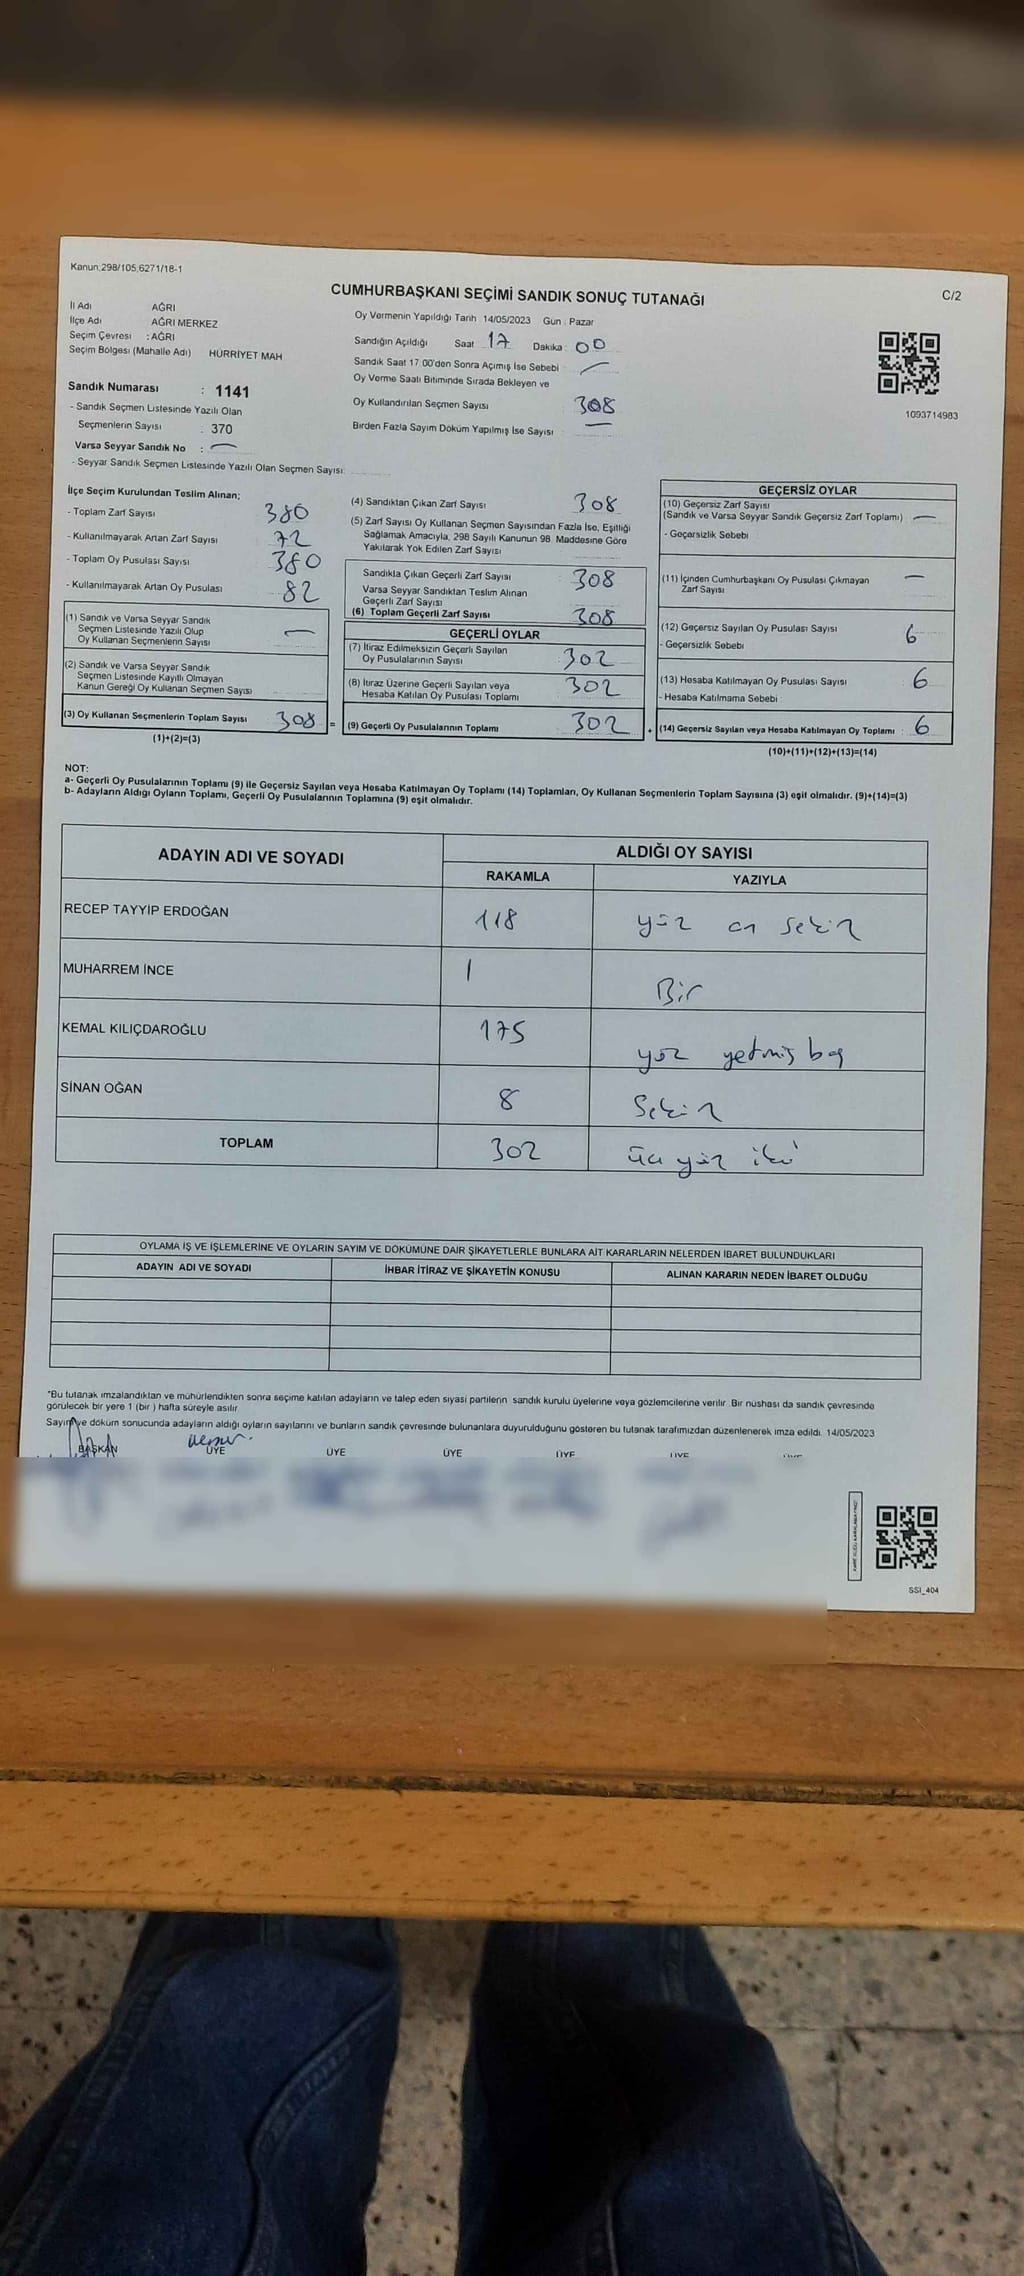 Kanun;298/105,6271/18-1
C/2
CUMHURBAŞKANI SEÇİMİ SANDIK SONUÇ TUTANAĞI
İl Adı AĞRI
İlçe Adı AĞRI MERKEZ
Seçim Çevresi : AĞRI
Seçim Bölgesi (Mahalle Adı) HÜRRİYET MAH
Oy Vermenin Yapıldığı Tarih 14/05/2023 Gün : Pazar
Sandığın Açıldığı Saat 17 Dakika : 00
Sandık Saat 17:00'den Sonra Açımış İse Sebebi
Oy Verme Saati Bitiminde Sırada Bekleyen ve
Oy Kullandırılan Seçmen Sayısı 308
Birden Fazla Sayım Döküm Yapılmış İse Sayısı
1093714983
Sandık Numarası : 1141
- Sandık Seçmen Listesinde Yazılı Olan
Seçmenlerin Sayısı : 370
Varsa Seyyar Sandık No :
- Seyyar Sandık Seçmen Listesinde Yazılı Olan Seçmen Sayısı:
İlçe Seçim Kurulundan Teslim Alınan;
- Toplam Zarf Sayısı 380
- Kullanılmayarak Artan Zarf Sayısı 72
- Toplam Oy Pusulası Sayısı 380
- Kullanılmayarak Artan Oy Pusulası 82
(1) Sandık ve Varsa Seyyar Sandık
Seçmen Listesinde Yazılı Olup
Oy Kullanan Seçmenlerin Sayısı
(2) Sandık ve Varsa Seyyar Sandık
Seçmen Listesinde Kayıtlı Olmayan
Kanun Gereği Oy Kullanan Seçmen Sayısı
(3) Oy Kullanan Seçmenlerin Toplam Sayısı 308 =
(1)+(2)=(3)
(4) Sandıktan Çıkan Zarf Sayısı 308
(5) Zarf Sayısı Oy Kullanan Seçmen Sayısından Fazla İse, Eşitliği
Sağlamak Amacıyla, 298 Sayılı Kanunun 98. Maddesine Göre
Yakılarak Yok Edilen Zarf Sayısı
Sandıkta Çıkan Geçerli Zarf Sayısı 308
Varsa Seyyar Sandıktan Teslim Alınan
Geçerli Zarf Sayısı
(6) Toplam Geçerli Zarf Sayısı 308
GEÇERLİ OYLAR
(7) İtiraz Edilmeksizin Geçerli Sayılan
Oy Pusulalarının Sayısı 302
(8) İtiraz Üzerine Geçerli Sayılan veya
Hesaba Katılan Oy Pusulası Toplamı 302
(9) Geçerli Oy Pusulalarının Toplamı 302
GEÇERSİZ OYLAR
(10) Geçersiz Zarf Sayısı
(Sandık ve Varsa Seyyar Sandık Geçersiz Zarf Toplamı)
- Geçersizlik Sebebi
(11) İçinden Cumhurbaşkanı Oy Pusulası Çıkmayan
Zarf Sayısı
(12) Geçersiz Sayılan Oy Pusulası Sayısı 6
- Geçersizlik Sebebi
(13) Hesaba Katılmayan Oy Pusulası Sayısı 6
- Hesaba Katılmama Sebebi
(14) Geçersiz Sayılan veya Hesaba Katılmayan Oy Toplamı : 6
(10)+(11)+(12)+(13)=(14)
NOT:
a- Geçerli Oy Pusulalarının Toplamı (9) ile Geçersiz Sayılan veya Hesaba Katılmayan Oy Toplamı (14) Toplamları, Oy Kullanan Seçmenlerin Toplam Sayısına (3) eşit olmalıdır. (9)+(14)=(3)
b- Adayların Aldığı Oyların Toplamı, Geçerli Oy Pusulalarının Toplamına (9) eşit olmalıdır.
ADAYIN ADI VE SOYADI
ALDIĞI OY SAYISI
RAKAMLA YAZIYLA
RECEP TAYYİP ERDOĞAN 118 yüz on sekiz
MUHARREM İNCE 1 Bir
KEMAL KILIÇDAROĞLU 175 yüz yetmiş beş
SİNAN OĞAN 8 Sekiz
TOPLAM 302 üç yüz iki
OYLAMA İŞ VE İŞLEMLERİNE VE OYLARIN SAYIM VE DÖKÜMÜNE DAİR ŞİKAYETLERLE BUNLARA AİT KARARLARIN NELERDEN İBARET BULUNDUKLARI
ADAYIN ADI VE SOYADI İHBAR İTİRAZ VE ŞİKAYETİN KONUSU ALINAN KARARIN NEDEN İBARET OLDUĞU
*Bu tutanak imzalandıktan ve mühürlendikten sonra seçime katılan adayların ve talep eden siyasi partilerin sandık kurulu üyelerine veya gözlemcilerine verilir. Bir nüshası da sandık çevresinde
görülecek bir yere 1 (bir ) hafta süreyle asılır.
Sayım ve döküm sonucunda adayların aldığı oyların sayılarını ve bunların sandık çevresinde bulunanlara duyurulduğunu gösteren bu tutanak tarafımızdan düzenlenerek imza edildi. 14/05/2023
BAŞKAN ÜYE ÜYE ÜYE ÜYE ÜYE
SSI_404